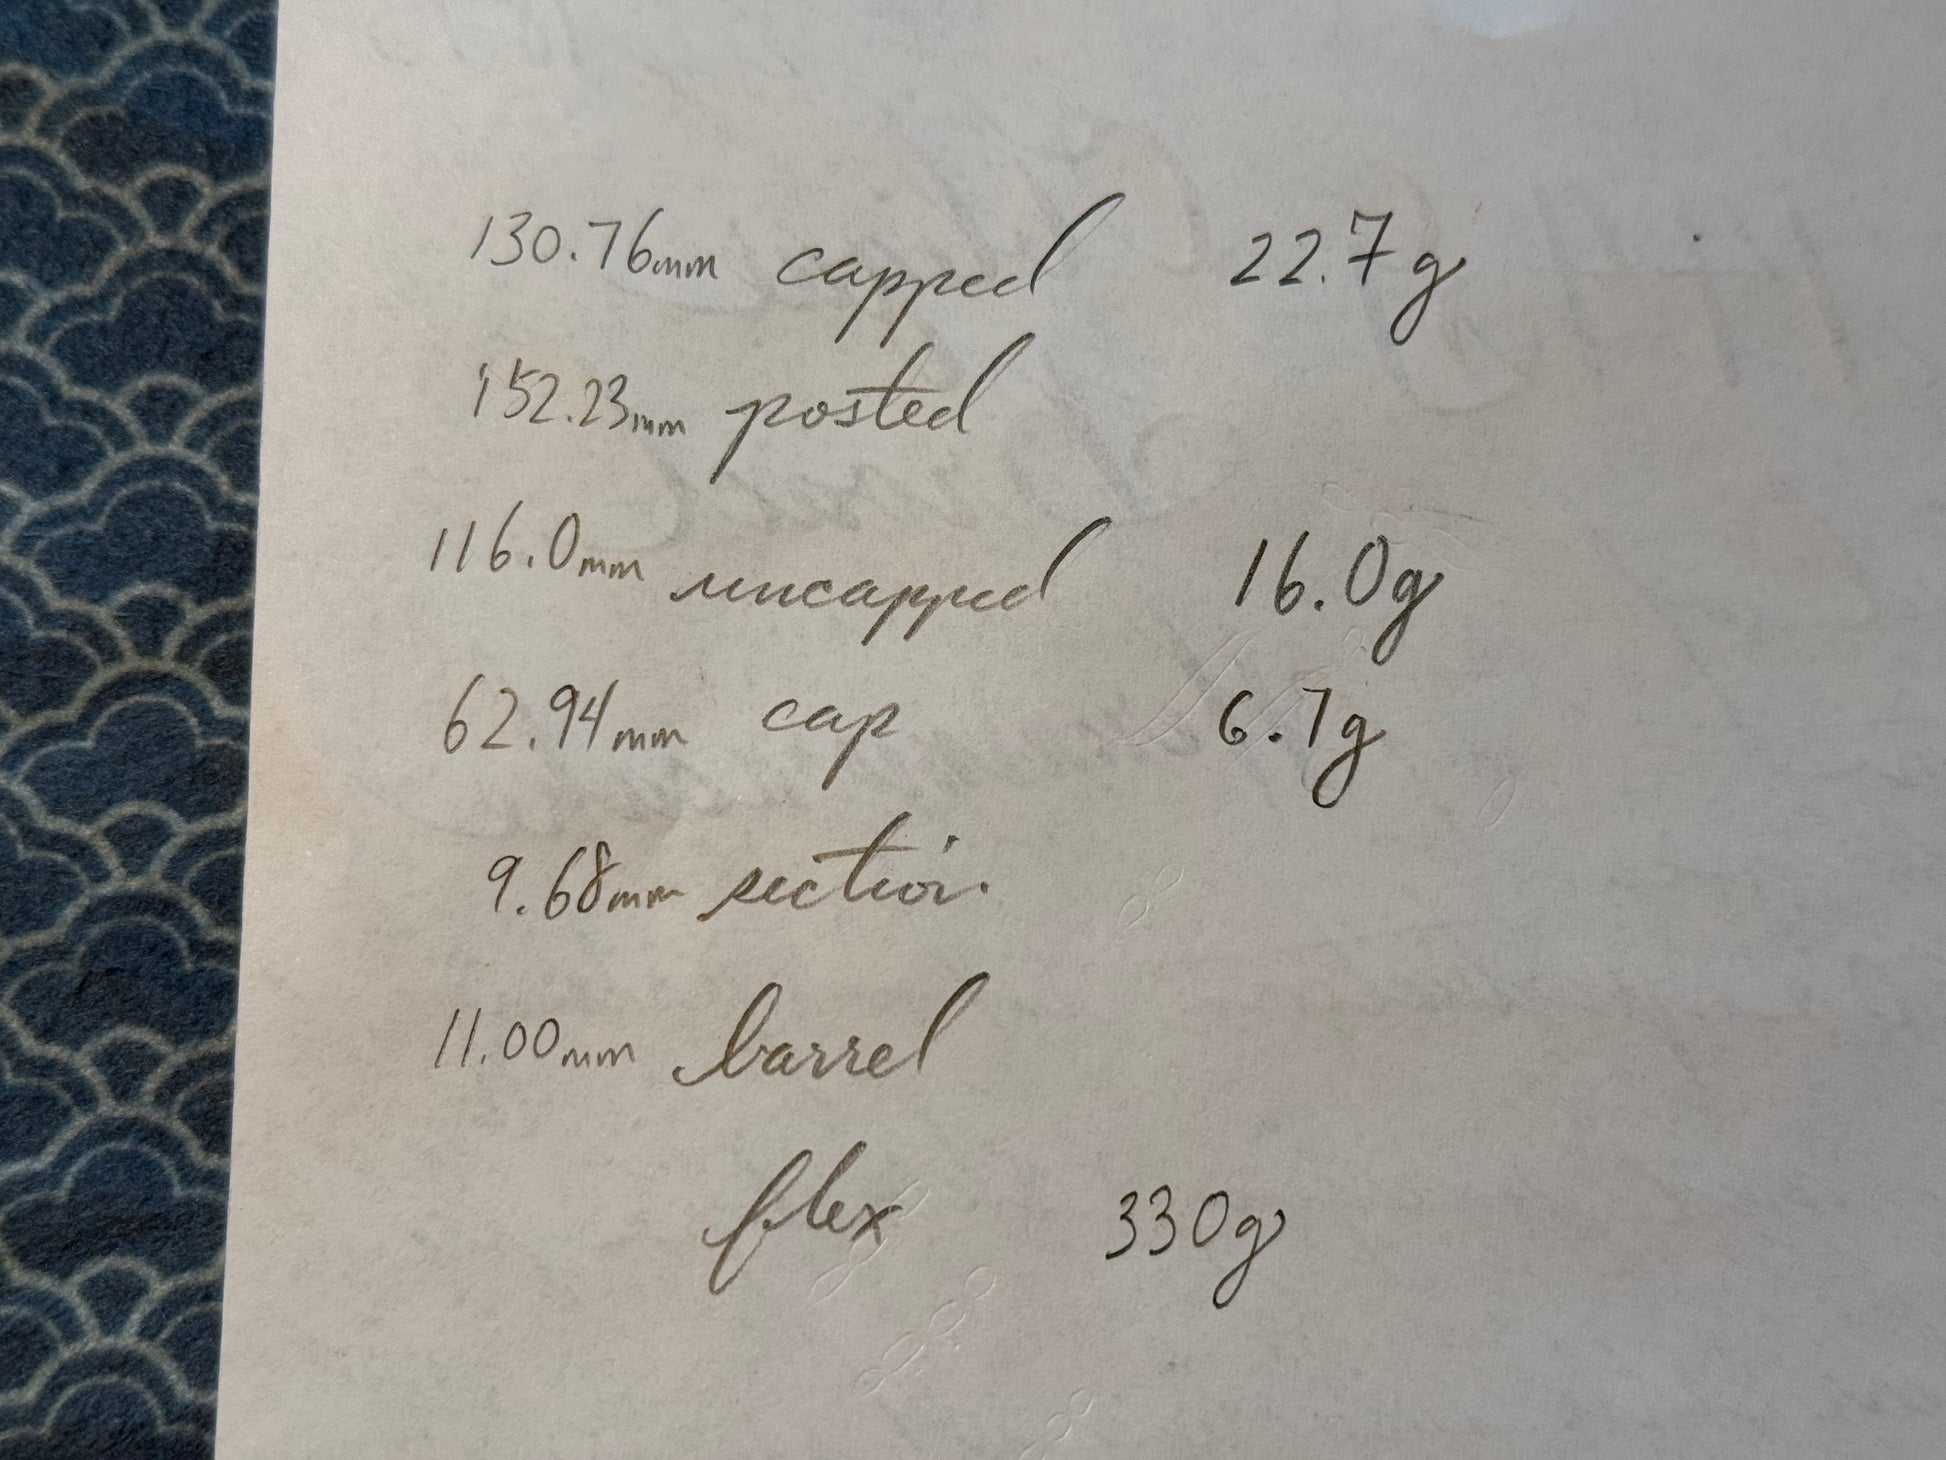 130.76mm capped 22.7g
152.23mm posted
116.0mm uncapped 16.0g
62.94mm cap 6.7g
9.68mm section
11.00mm barrel
flex 330g